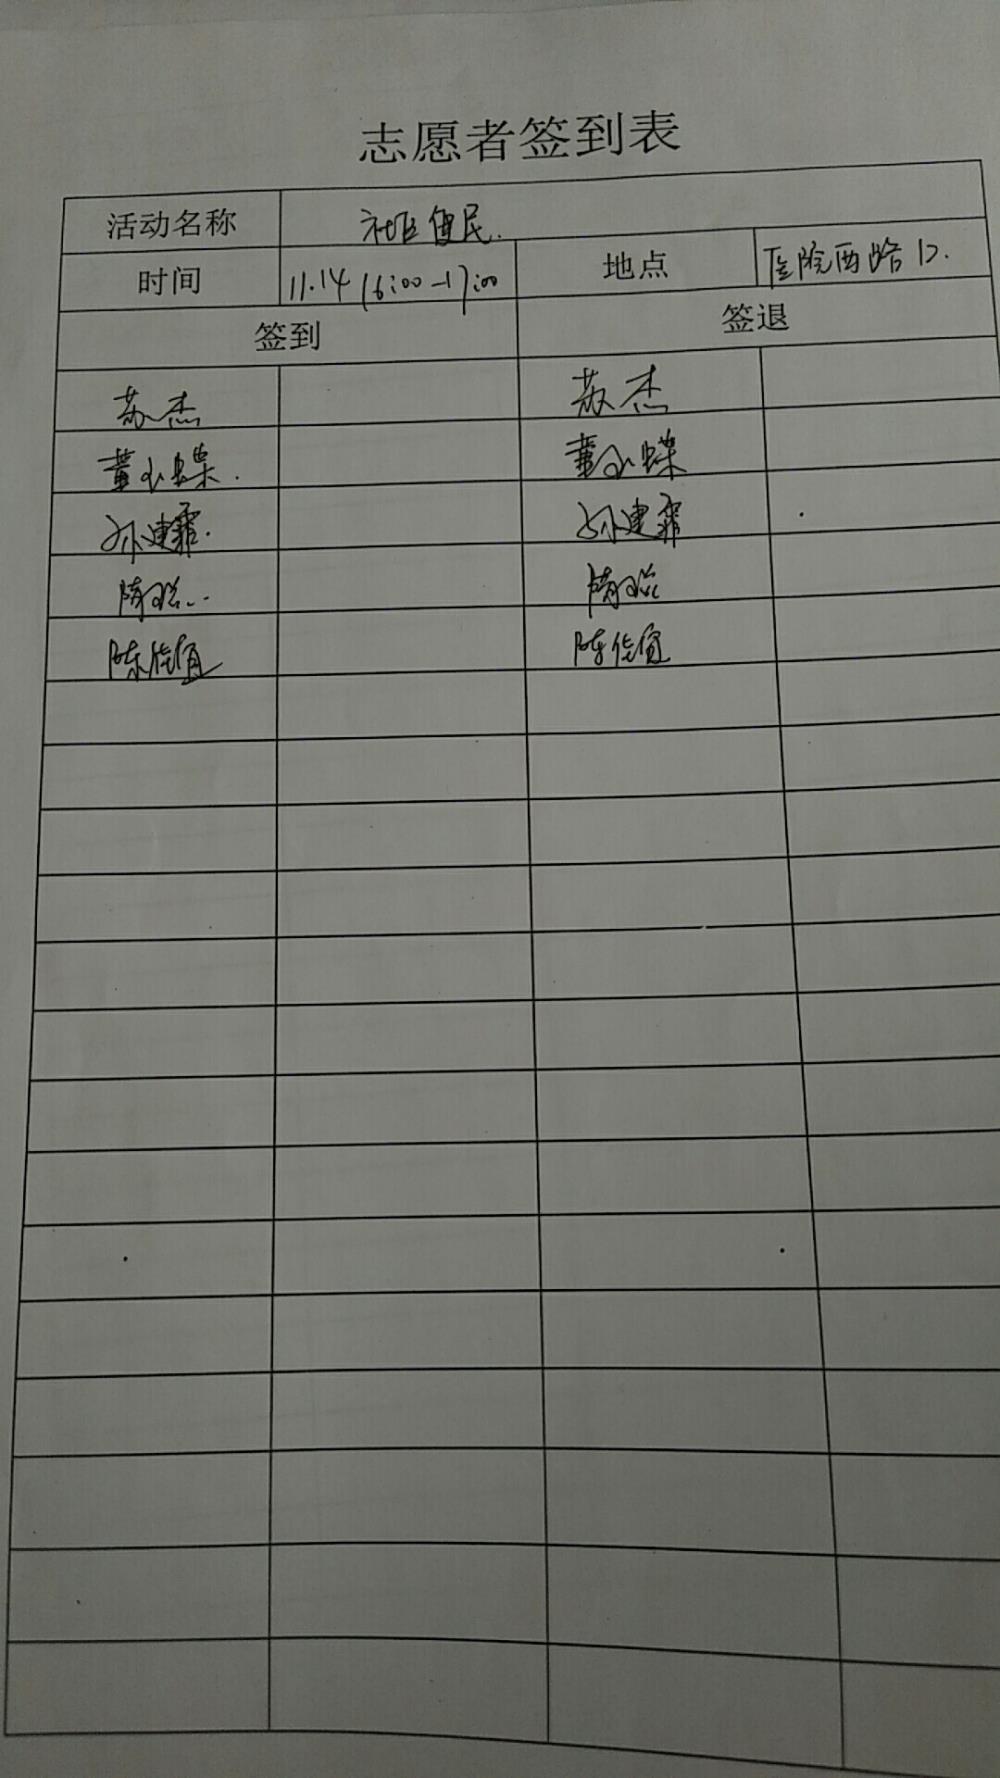 志愿者签到表
活动名称 社区便民.
时间 11.14 16:00-17:00 地点 医院西路口.
签到 签退
苏杰 苏杰
董小蝶. 董小蝶
孙建霏. 孙建霏
隋
陈佳宜 陈佳宜